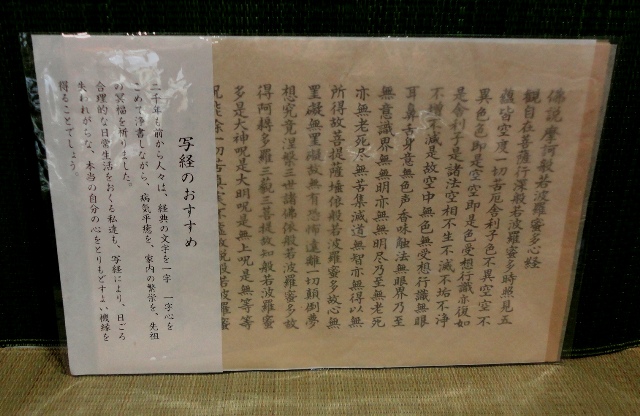 佛説摩訶般若波羅蜜多心経
観自在菩薩行深般若波羅蜜多時照見五
蘊皆空度一切苦厄舎利子色不異空空不
異色色即是空空即是色受想行識亦復如
是舎利子是諸法空相不生不滅不垢不浄
不増不減是故空中無色無受想行識無眼
耳鼻舌身意無色声香味触法無眼界乃至
無意識界無無明亦無無明尽乃至無老死
亦無老死尽無苦集滅道無智亦無得以無
所得故菩提薩埵依般若波羅蜜多故心無
罣礙無罣礙故無有恐怖遠離一切顛倒夢
想究竟涅槃三世諸佛依般若波羅蜜多故
得阿耨多羅三藐三菩提故知般若波羅蜜
多是大神呪是大明呪是無上呪是無等等
呪能除一切苦真実不虚故説般若波羅蜜
写経のおすすめ
二千年も前から人々は、経典の文字を一字 一字心を
こめて浄書しながら、病気平癒を、家内の繁栄を、先祖
の冥福を祈りました。
合理的な日常生活をおくる私達も、写経により、日ごろ
失われがちな、本当の自分の心をとりもどすよい機縁を
得ることでしょう